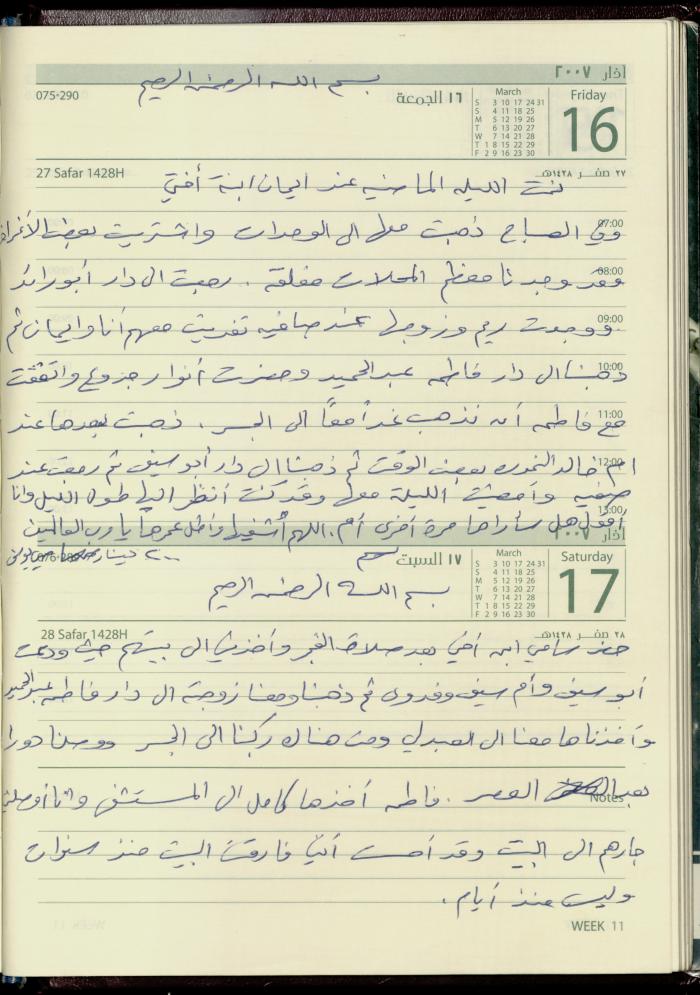 اذار ٢٠٠٧
بسم الله الرحمن الرحيم
075-290
١٦ الجمعة
March
S 3 10 17 24 31
S 4 11 18 25
M 5 12 19 26
T 6 13 20 27
W 7 14 21 28
T 1 8 15 22 29
F 2 9 16 23 30
Friday
16
27 Safar 1428H
٢٧ صفر ١٤٢٨هـ
نمت الليلة الماضية عند ايمان ابنة أختي
07:00
وفي الصباح ذهبت معها الى الوحدات واشتريت بعض الأغراض
08:00
وقد وجدنا معظم المحلات مغلقة . رحبت ال دار أبو رائد
09:00
ووجدت ريم وزوجها عند صافيه تغديت معهم أنا وايمان ثم
10:00
ذهبنا ال دار فاطمه عبد الحميد وحضرت أنوار جزوع واتفقت
11:00
مع فاطمه أن نذهب غداً معاً الى الجسر . ذهبت بعدها عند
12:00
ام خالد النمورة بعض الوقت ثم ذهبنا ال دار أبو سيف ثم رجعت عند
صفيه وأمضيت الليلة معها وقد كنت أنظر اليها طول الليل وانا
13:00
أقول هل سأراها مرة أخرى أم . اللهم أشفيها وأطل عمرها يا رب العالمين
اذار ٢٠٠٧
٢٠٠ دينار
١٧ السبت
March
S 3 10 17 24 31
S 4 11 18 25
M 5 12 19 26
T 6 13 20 27
W 7 14 21 28
T 1 8 15 22 29
F 2 9 16 23 30
Saturday
17
بسم الله الرحمن الرحيم
28 Safar 1428H
٢٨ صفر ١٤٢٨هـ
حضر سامي ابن أختي بعد صلاة الفجر وأخذني ال بيتهم حيث ودعت
أبو سيف وأم سيف وفدوى ثم ذهبنا ومعنا زوجته ال دار فاطمه عبد الحميد
وأخذناها معنا ال العبدلي ومن هناك ركبنا الى الجسر ووصلنا دورا
بعد العصر . فاطمه أخذها كامل ال المستشفى وانا أوصلني
Notes
جارهم ال البيت وقد أحسست أني فارقت البيت منذ سنوات
وليس منذ أيام .
WEEK 11